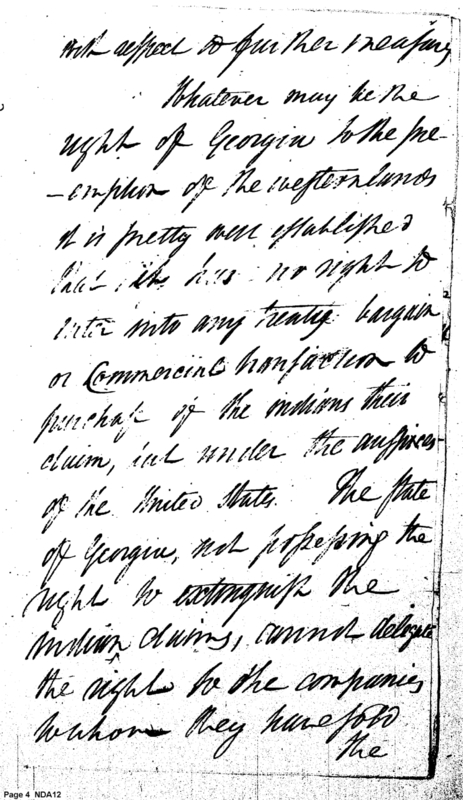 with respect to further measures
Whatever may be the
right of Georgia to the pre-
-emption of the western lands
it is pretty well established
that she has no right to
enter into any treaty bargain
or Commercial transaction to
purchase of the indians their
claim, but under the auspices
of the United States. The State
of Georgia, not possessing the
right to extinguish the
Indian claims, cannot delegate
the right to the companies
to whom they have sold
the
Page 4 NDA12